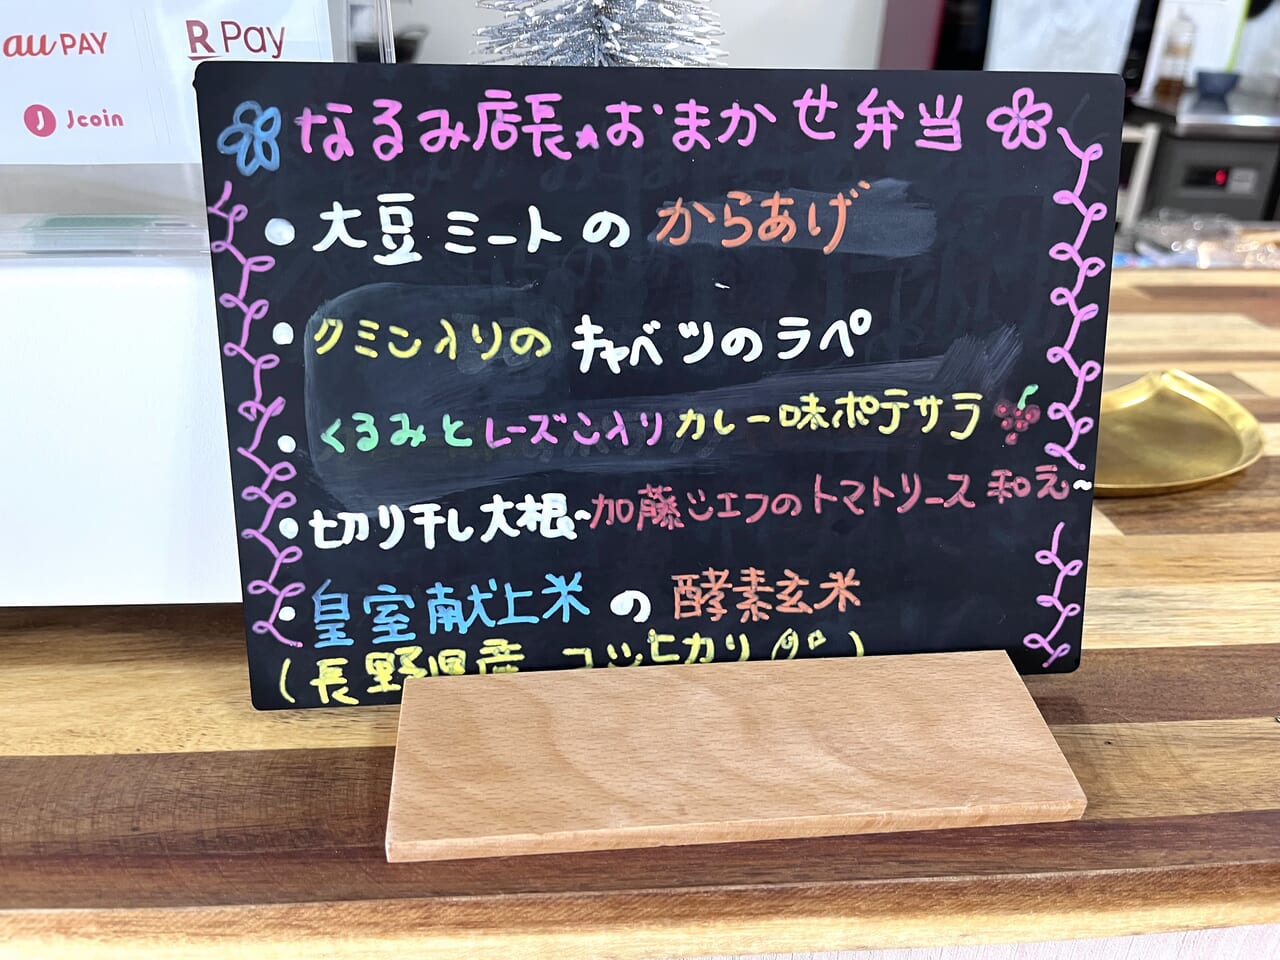 au PAY
R Pay
J Jcoin
なるみ店長★おまかせ弁当
・大豆ミートのからあげ
・クミン入りのキャベツのラペ
・くるみとレーズン入りカレー味ポテサラ
・切り干し大根~加藤シェフのトマトソース和え~
・皇室献上米の酵素玄米
(長野県産 コシヒカリ)